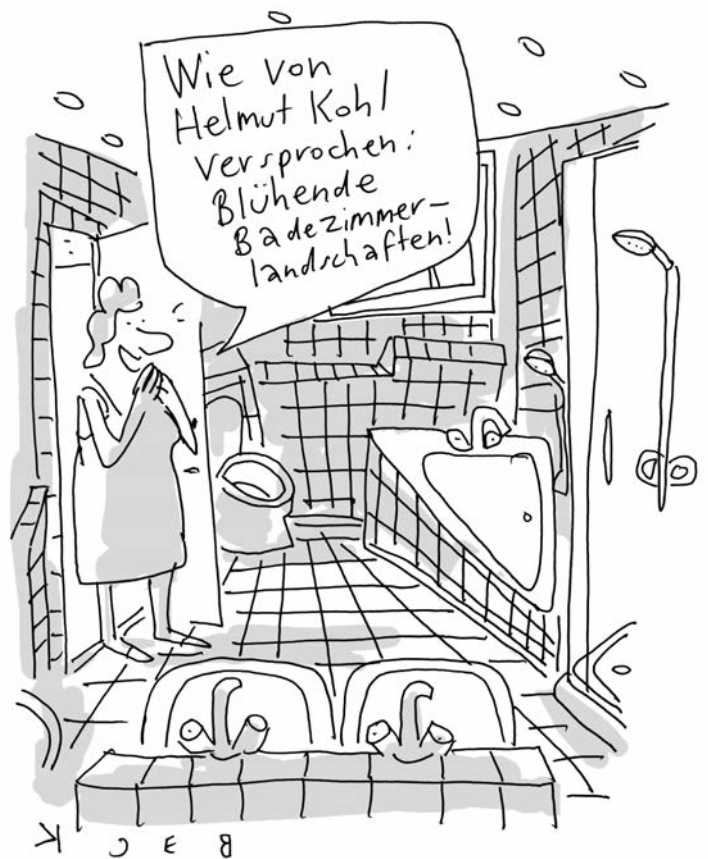 Wie von
Helmut Kohl
versprochen:
Blühende
Badezimmer-
landschaften!
BECK